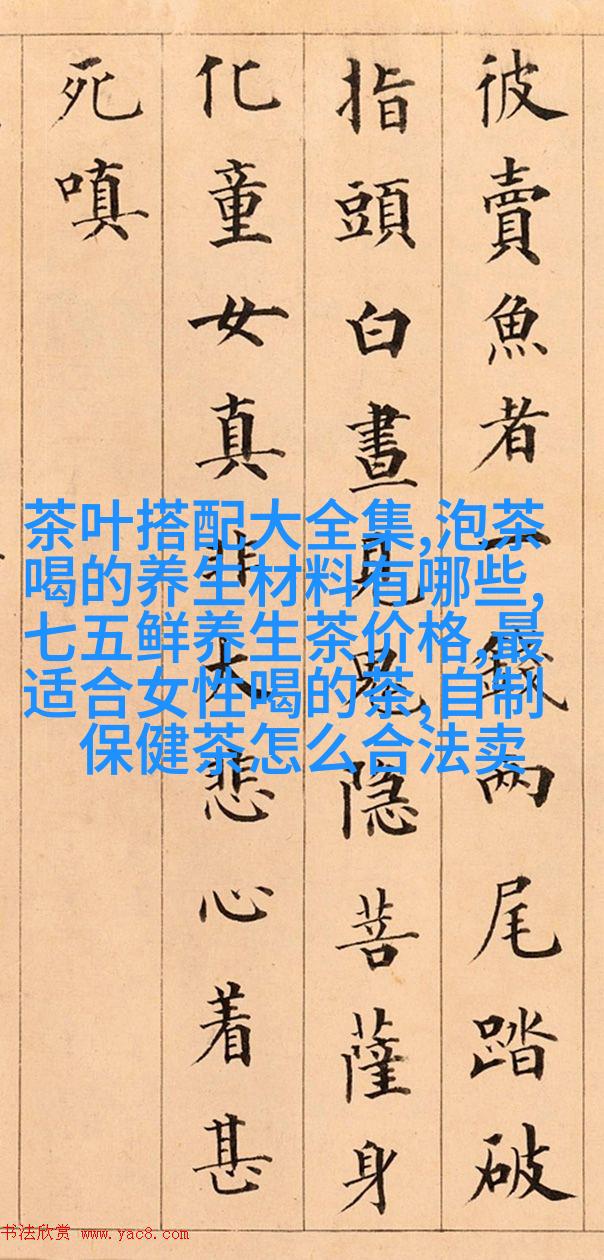 彼賣魚者一籤两尾踏破
指頭白晝見鬼隐菩薩身
化童女真非大悲心着甚
死嗔
茶叶搭配大全集,泡茶
喝的养生材料有哪些,
七五鲜养生茶价格,最
适合女性喝的茶,自制
保健茶怎么合法卖
书法欣赏 www.yac8.com